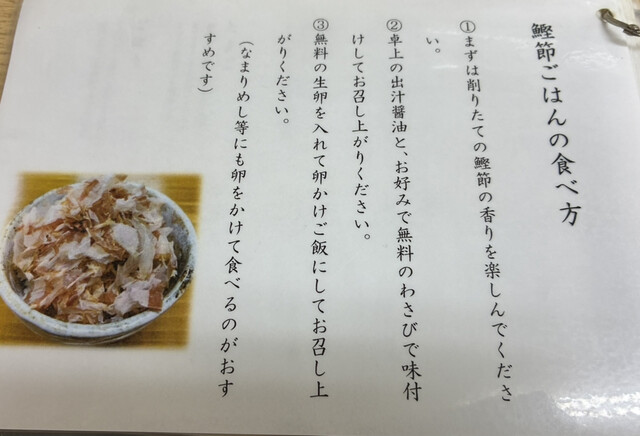 鰹節ごはんの食べ方
①まずは削りたての鰹節の香りを楽しんでくださ
い。
②卓上の出汁醤油と、お好みで無料のわさびで味付
けしてお召し上がりください。
③無料の生卵を入れて卵かけご飯にしてお召し上
がりください。
(なまりめし等にも卵をかけて食べるのがおす
すめです)